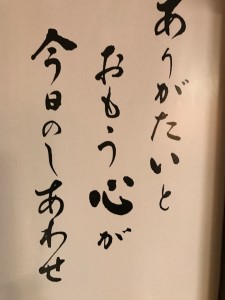 ありがたいと
おもう心が
今日のしあわせ